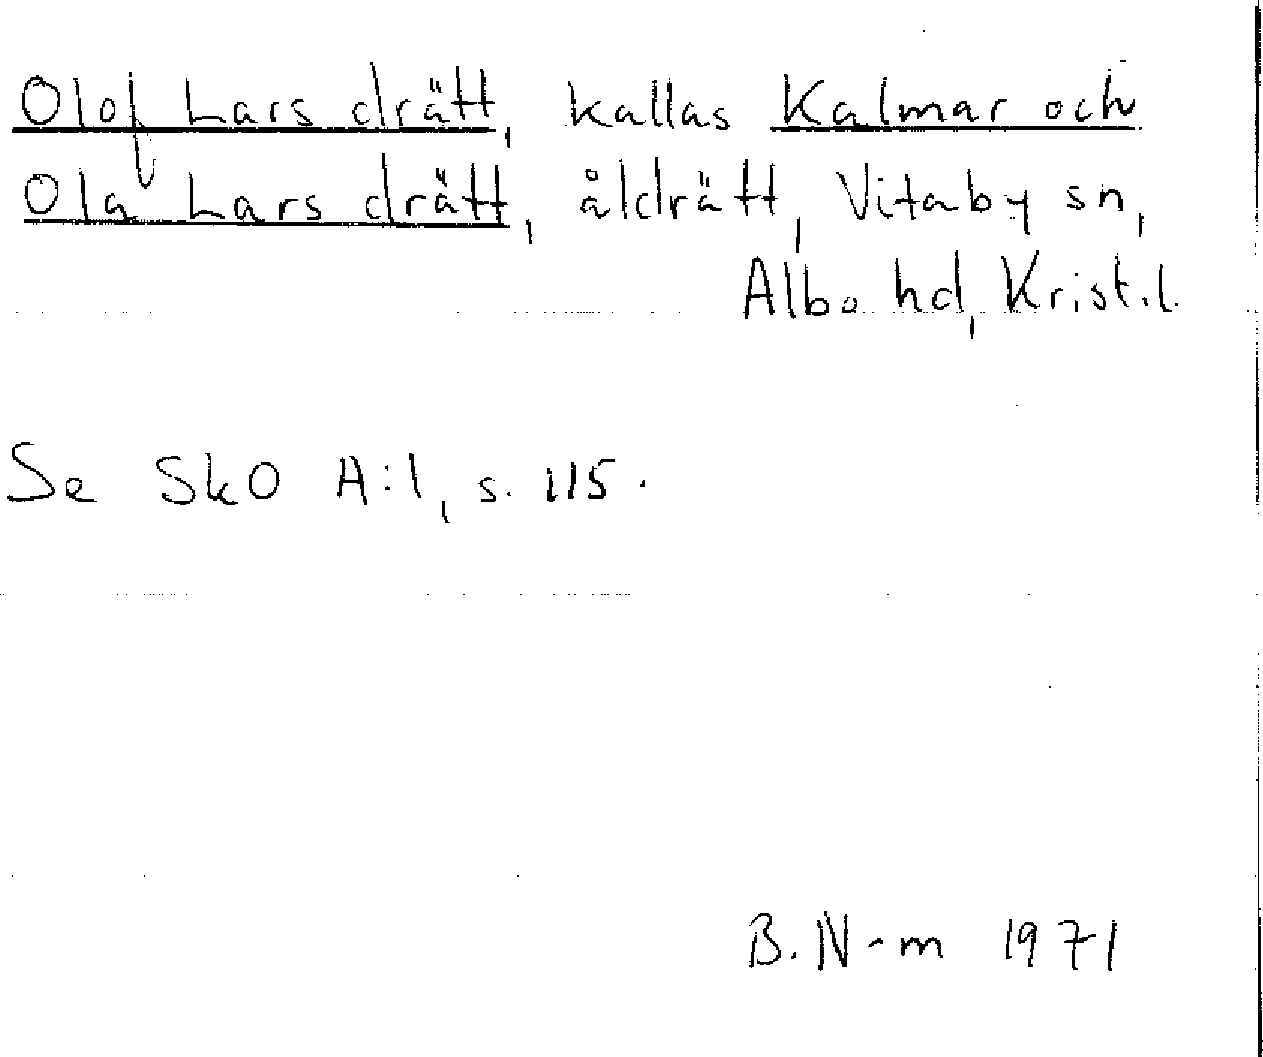 Olof Lars drätt, kallas Kalmar och
Ola Lars drätt, åldrätt, Vitaby sn,
Albo hd, Krist.l.
Se SkO A:1, s. 115.
B. N-m 1971